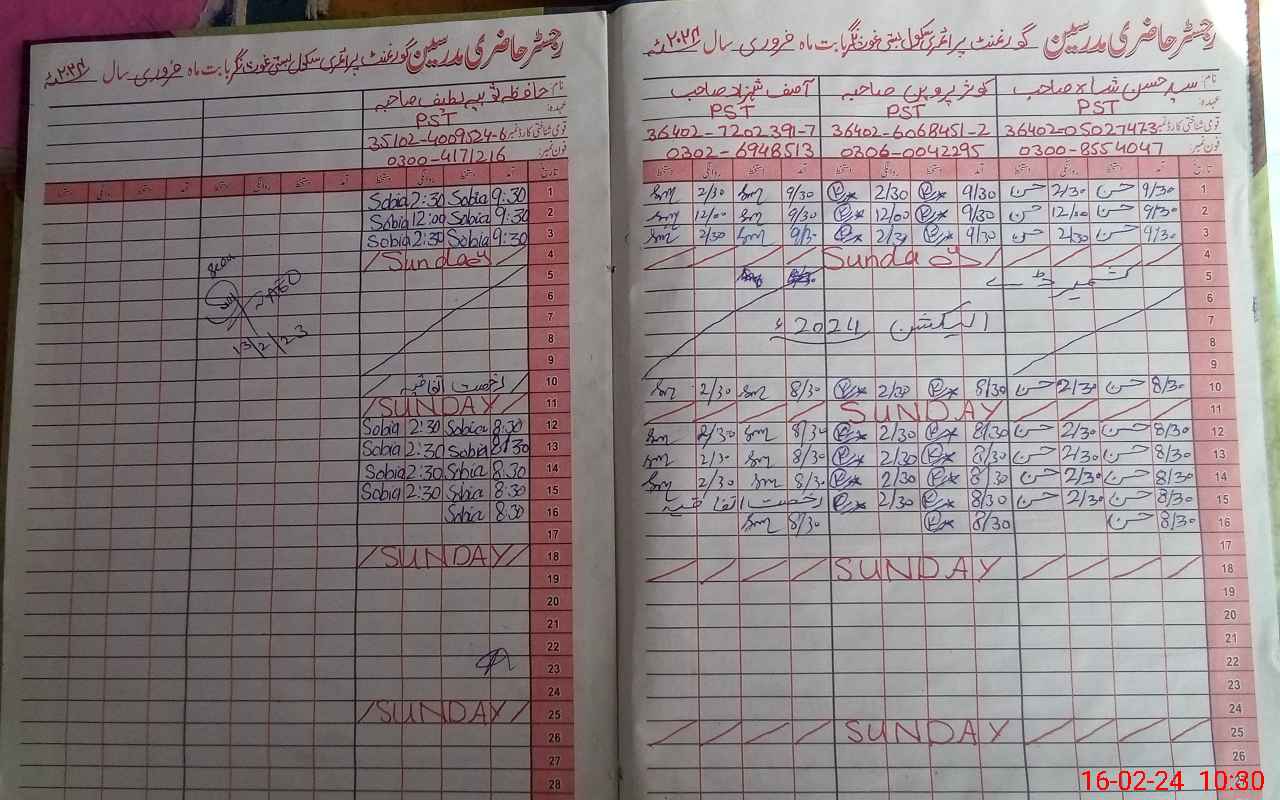 رجسٹر حاضری مدرسین گورنمنٹ پرائمری سکول بستی غوث نگر بابت ماہ فروری سال ۲۰۲۴ء
نام: سید حسن شاہ صاحب کوثر پروین صاحبہ آصف شہزاد صاحب
عہدہ: PST PST PST
قومی شناختی کارڈ نمبر 36402-05027473 36402-6068451-2 36402-7202391-7
فون نمبر: 0300-8554047 0306-0042295 0302-6948513
تاریخ آمد دستخط روانگی دستخط آمد دستخط روانگی دستخط آمد دستخط روانگی دستخط
1 9/30 حسن 2/30 حسن 9/30 2/30 9/30 2/30
2 9/30 حسن 12/00 حسن 9/30 12/00 9/30 12/00
3 9/30 حسن 2/30 حسن 9/30 2/30 9/30 2/30
4 Sunday
5 کشمیر ڈے
6
7 الیکشن 2024ء
8
9
10 8/30 حسن 2/30 حسن 8/30 2/30 8/30 2/30
11 SUNDAY
12 8/30 حسن 2/30 حسن 8/30 2/30 8/30 2/30
13 8/30 حسن 2/30 حسن 8/30 2/30 8/30 2/30
14 8/30 حسن 2/30 حسن 8/30 2/30 8/30 2/30
15 8/30 حسن 2/30 حسن 8/30 2/30 رخصت اتفاقیہ
16 8/30 حسن 8/30 8/30
17
18 SUNDAY
19
20
21
22
23
24
25 SUNDAY
26
رجسٹر حاضری مدرسین گورنمنٹ پرائمری سکول بستی غوث نگر بابت ماہ فروری سال ۲۰۲۴ء
نام: حافظہ ثوبیہ لطیف صاحبہ
عہدہ: PST
قومی شناختی کارڈ نمبر 35102-4009524-6
فون نمبر: 0300-4171216
تاریخ آمد دستخط روانگی دستخط آمد دستخط روانگی دستخط آمد دستخط روانگی دستخط
1 9:30 Sobia 2:30 Sobia
2 9:30 Sobia 12:00 Sobia
3 9:30 Sobia 2:30 Sobia
4 Sunday
5
6
7
8 13/2/23
9
10 رخصت اتفاقیہ
11 SUNDAY
12 8:30 Sobia 2:30 Sobia
13 8:30 Sobia 2:30 Sobia
14 8:30 Sobia 2:30 Sobia
15 8:30 Sobia 2:30 Sobia
16 8:30 Sobia
17
18 SUNDAY
19
20
21
22
23
24
25 SUNDAY
26
27
28
16-02-24 10:30